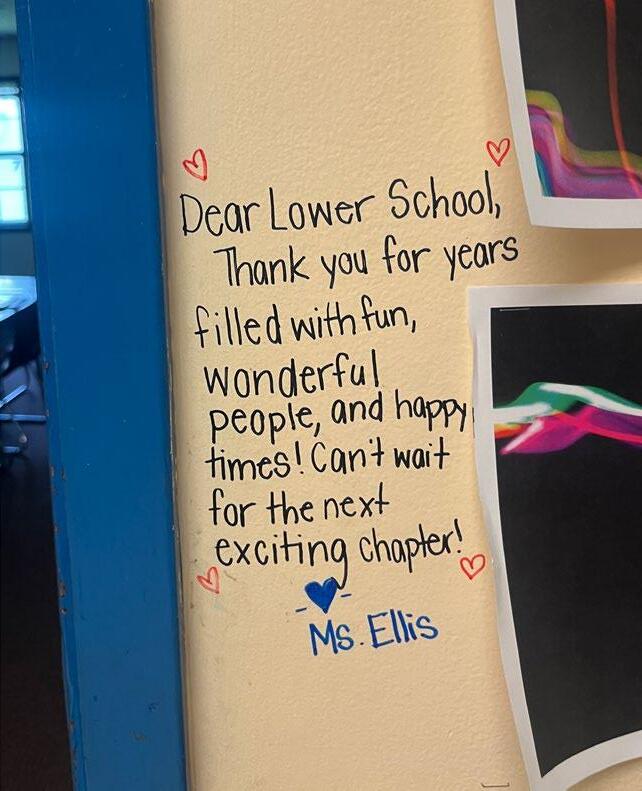 Dear Lower School,
Thank you for years
filled with fun,
wonderful
people, and happy
times! Can't wait
for the next
exciting chapter!
Ms. Ellis